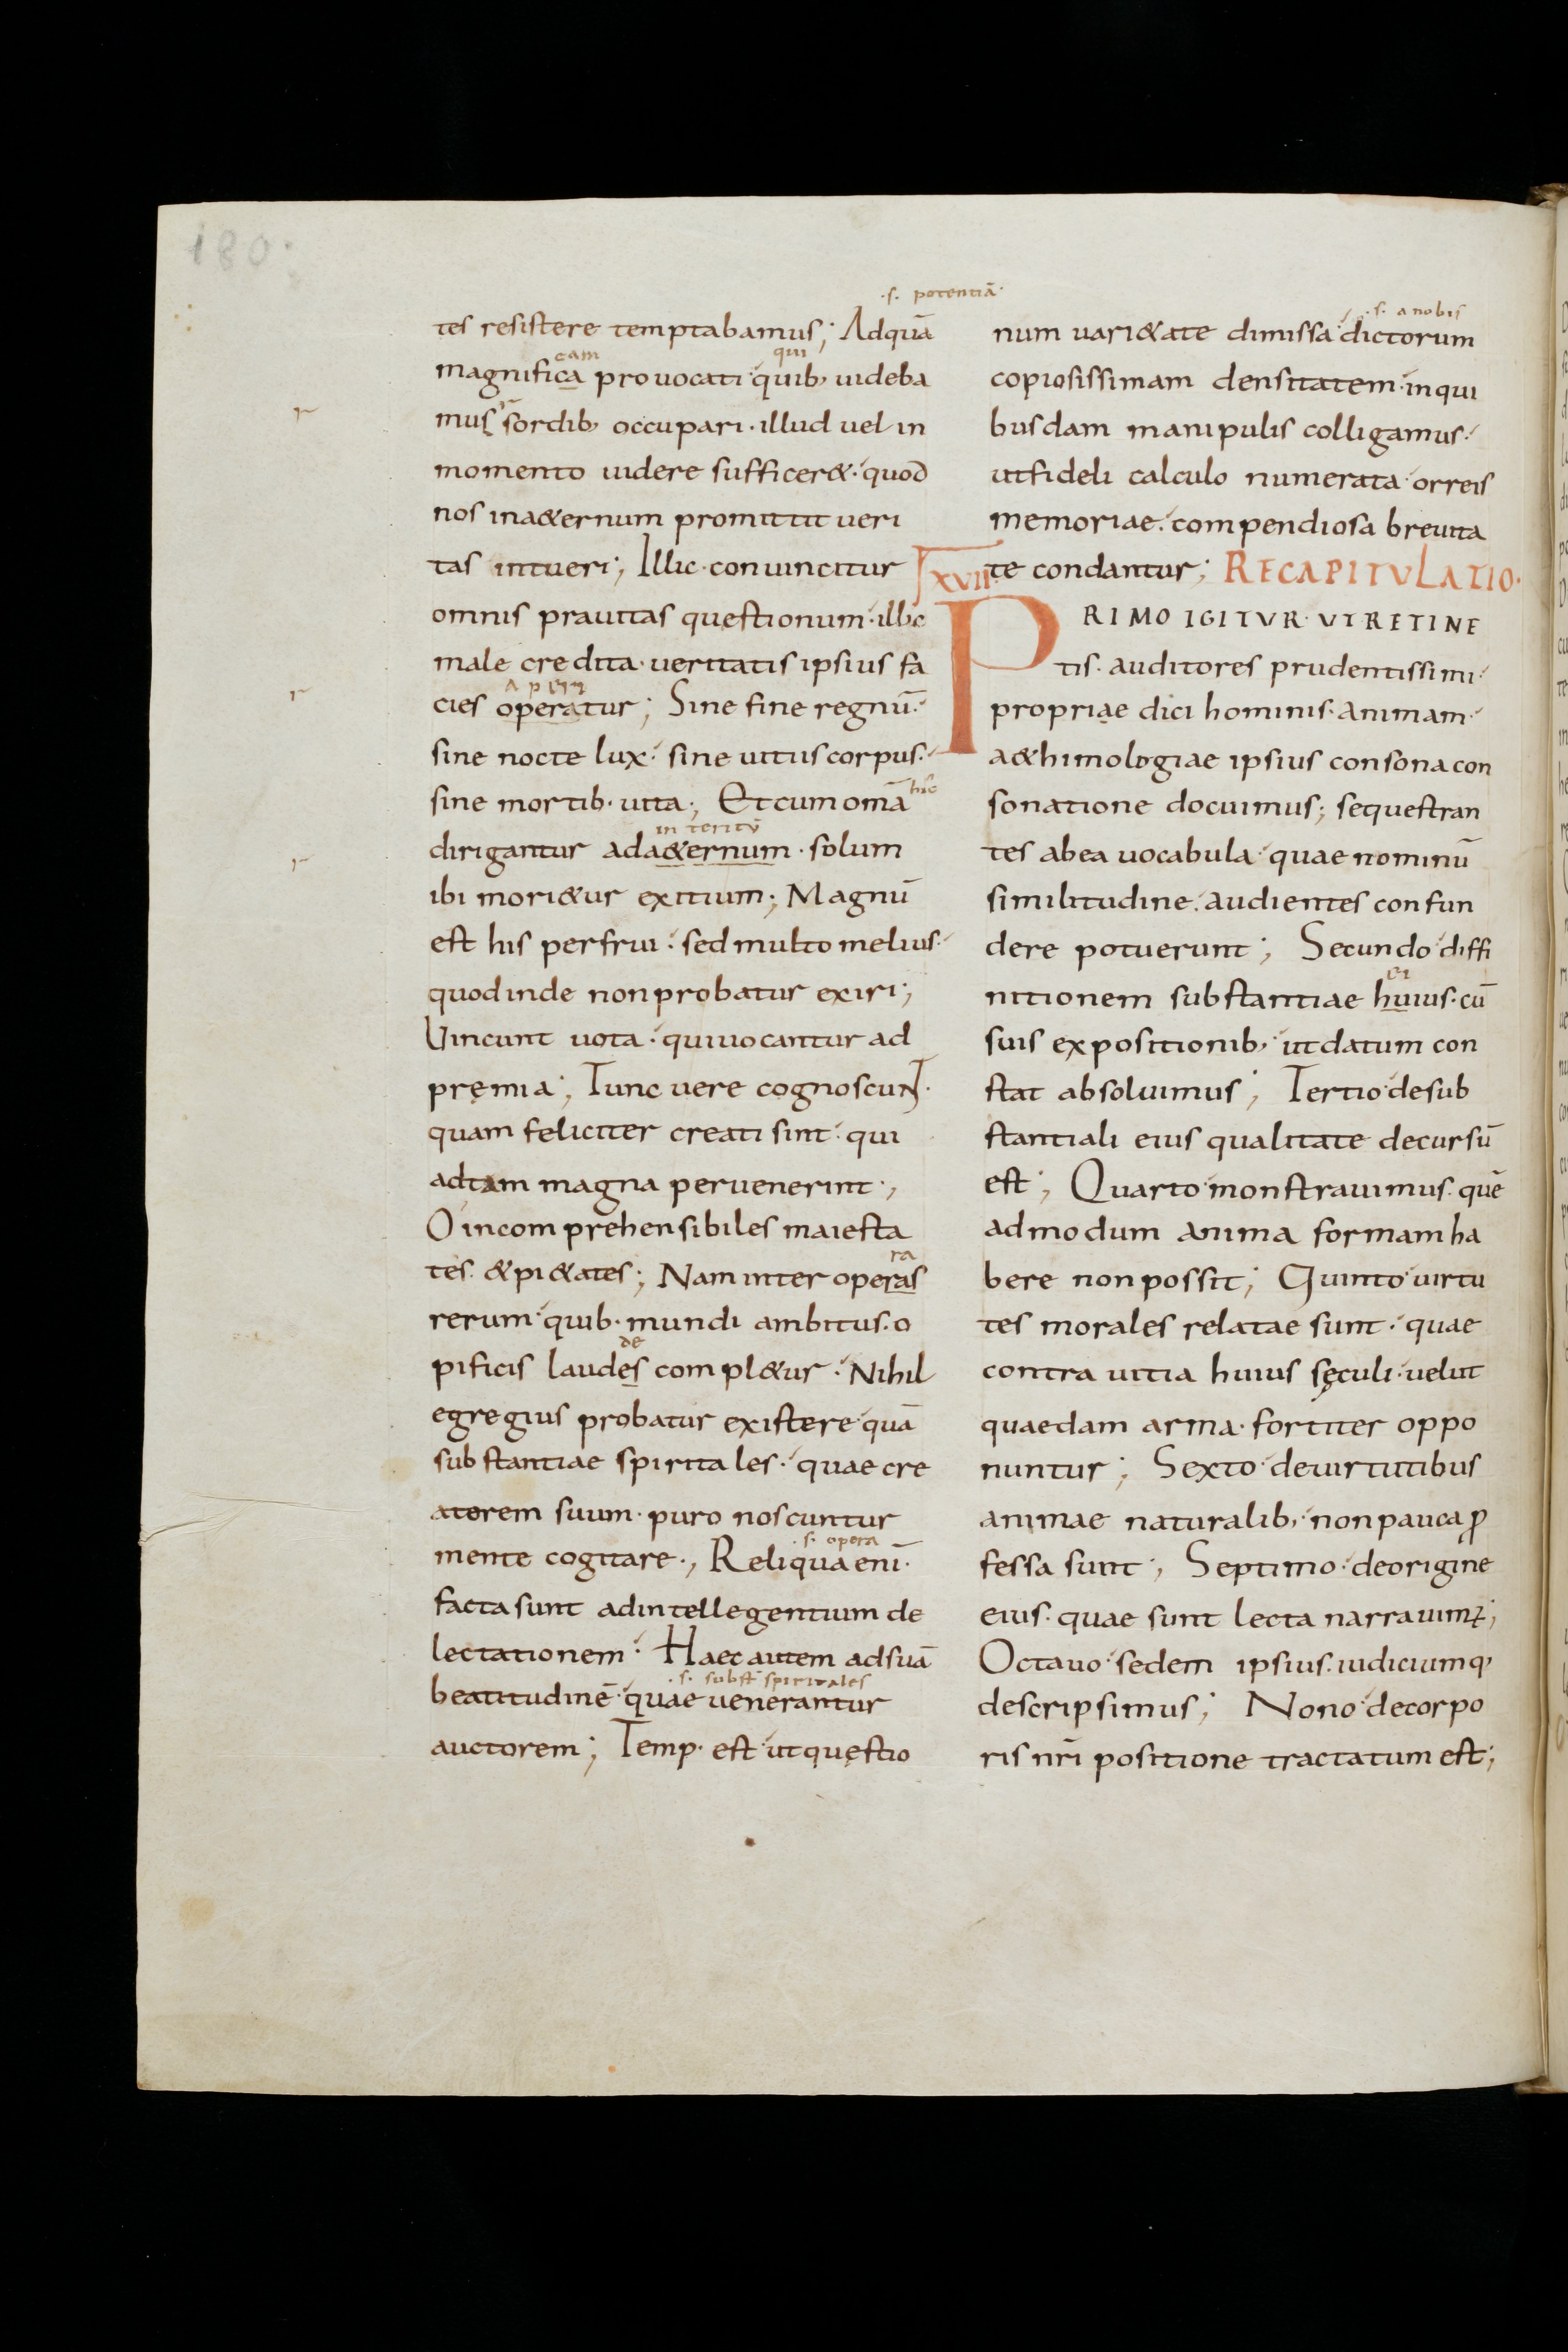 180.
·s· potentiā·
tes resistere temptabamus; Adquā
cam qui
magnifica prouocati· quib, uideba
mus sordib, occupari· illud uel in
momento uidere sufficer&· quod
nos ina&ernum promittit ueri
tas intueri; Illic· conuincitur
omnis prauitas questionum· illic
male credita· ueritatis ipsius fa
cies operatur; Sine fine regnū·
sine nocte lux· sine uitiis corpus·
hic
sine mortib· uita; Et cum omā
in teritū
dirigantur ada&ernum· solum
ibi mori&ur exitium; Magnū
est his perfrui· sed multo melius·
quodinde nonprobatur exiri;
Uincunt uota· qui uocantur ad
pręmia; Tunc uere cognoscunt·
quam feliciter creati sint· qui
adtam magna peruenerint;
O incomprehensibiles maiesta
ra
tes· &pi&ates; Nam inter operas
rerum· quib· mundi ambitus· o
de
pificis laudes compl&ur· Nihil
egregius probatur existere· quā
substantiae spiritales· quae cre
atorem suum· puro noscuntur
·s· opera
mente cogitare; Reliqua enī·
facta sunt adintellegentium de
lectationem· Haec autem adsuā
·s· subst̄ spiritales
beatitudinē· quae uenerantur
auctorem; Temp· est· ut quęstio
·s· a nobis
num uari&ate dimissa· dictorum
copiosissimam densitatem· inqui
busdam manipulis colligamus·
utfideli calculo numerata· orreis
memoriae· compendiosa breuita
te condantur; RECAPITULATIO·
XVII·
PRIMO IGITVR· VT RETINE
tis· auditores prudentissimi·
propriae dici hominis· animam·
a&himologiae ipsius consona con
sonatione docuimus; sequestran
tes abea uocabula· quae nominū
similitudine· audientes confun
dere potuerunt; Secundo· diffi
ei
nitionem substantiae huius· cū
suis expositionib, ut datum con
stat absoluimus; Tertio· desub
stantiali eius qualitate decursū
est; Quarto· monstrauimus· quē
admodum anima formam ha
bere non possit; Quinto· uirtu
tes morales relatae sunt· quae
contra uitia huius sęculi· uelut
quaedam arma· fortiter oppo
nuntur; Sexto· deuirtutibus
animae naturalib, non pauca ꝓ
fessa sunt; Septimo· deorigine
eius· quae sunt lecta narrauimꝰ;
Octauo· sedem ipsius· iudiciumq,
descripsimus; Nono· decorpo
ris nr̄i positione tractatum est;